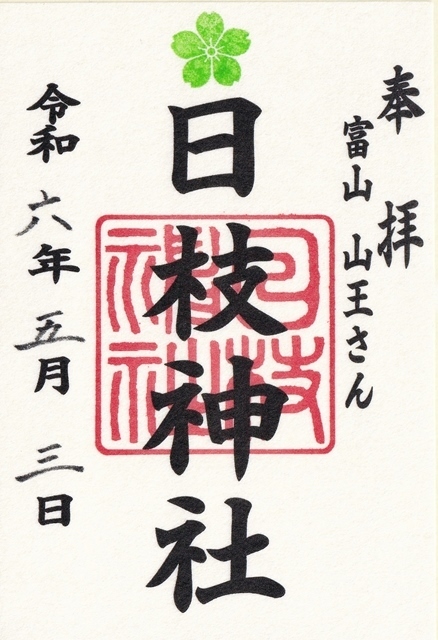 奉拝
富山 山王さん
日枝神社
日枝神社
令和六年五月三日